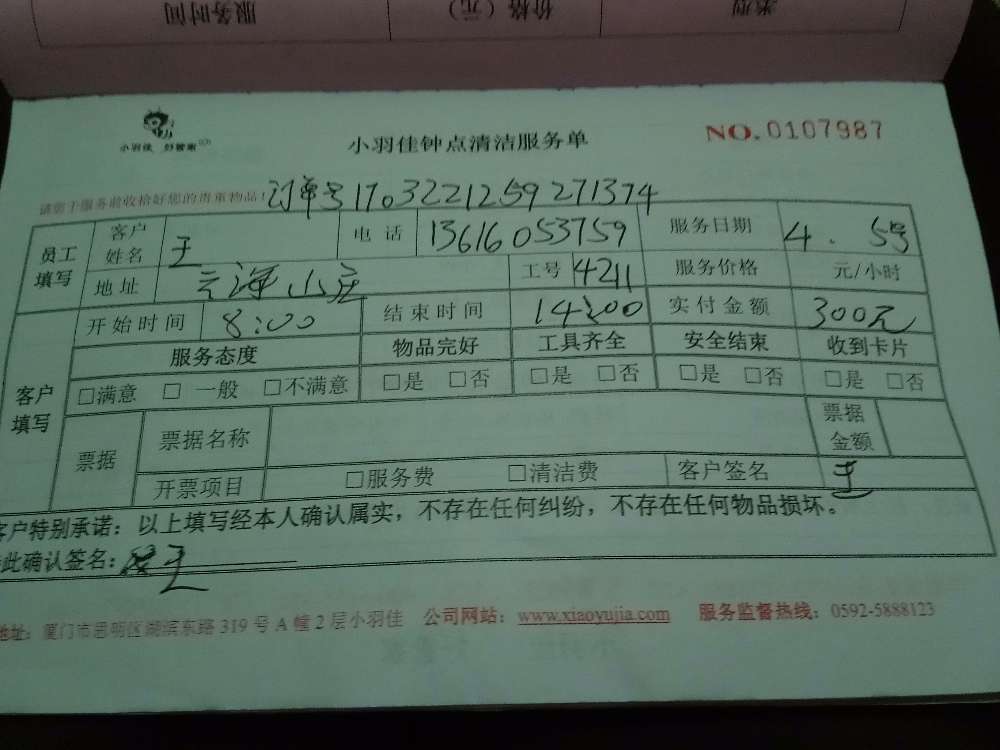 服务时间 价格（元） 类型
小羽佳 好管家
小羽佳钟点清洁服务单
NO.0107987
请您于服务前收拾好您的贵重物品！订单号1703221259271374
员工填写 客户姓名 王 电话 13616053759 服务日期 4.5号
地址 云海山庄 工号 4211 服务价格 元/小时
客户填写 开始时间 8:00 结束时间 14:00 实付金额 300元
服务态度 物品完好 工具齐全 安全结束 收到卡片
□满意 □一般 □不满意 □是 □否 □是 □否 □是 □否 □是 □否
票据 票据名称 票据金额
开票项目 □服务费 □清洁费 客户签名 王
客户特别承诺：以上填写经本人确认属实，不存在任何纠纷，不存在任何物品损坏。
此确认签名：王
地址：厦门市思明区湖滨东路319号A幢2层小羽佳 公司网站：www.xiaoyujia.com 服务监督热线：0592-5888123